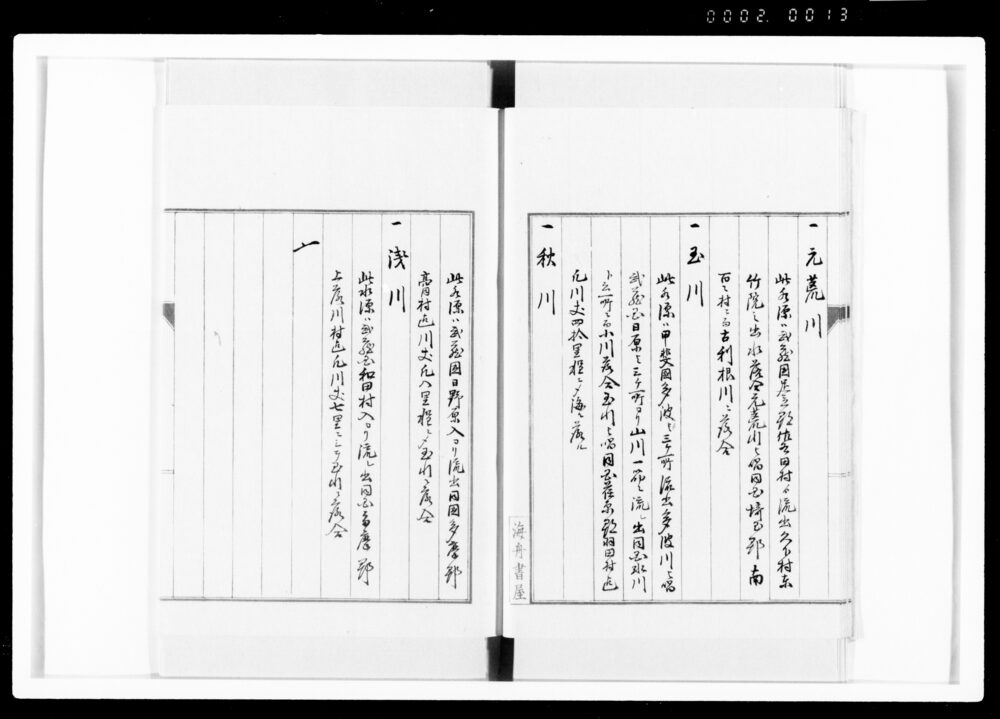 0002 0013
一 元荒川
此水源ハ武蔵国足立郡佐谷田村ゟ流出久下村東
竹院之出水落合元荒川と唱同国埼玉郡南
百々村ニ而古利根川ニ落合
一 玉川
此水源ハ甲斐国多波と三ケ所流出多波川と唱
武蔵国日原と三ケ所ゟ山川一筋ニ流レ出同国氷川
ト云所ニ而小川落合玉川と唱同国荏原郡羽田村迄
凡川丈四拾里程ニ〆海ニ落ル
一 秋川
海舟書屋
此水源ハ武蔵国日野原入ゟ流出同国多摩郡
高月村迄川丈凡八里程ニ〆玉川ニ落合
一 浅川
此水源ハ武蔵国和田村入ゟ流レ出同国多摩郡
上落川村迄凡川丈七里ニ玉川ニ落合
一